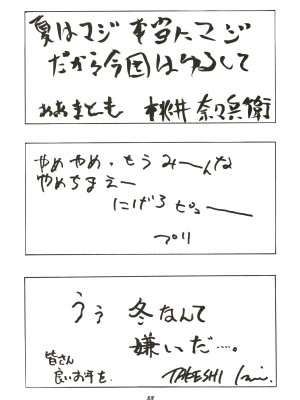 夏はマジ本当にマジ
だから今回はゆるして
おおまとも 桃井奈々兵衛
やめやめ・もうみーんな
やめちまえー
にげろピューー
プリ
うぅ 冬なんて
嫌いだ……。
皆さん
良いお年を。
TAKESHI